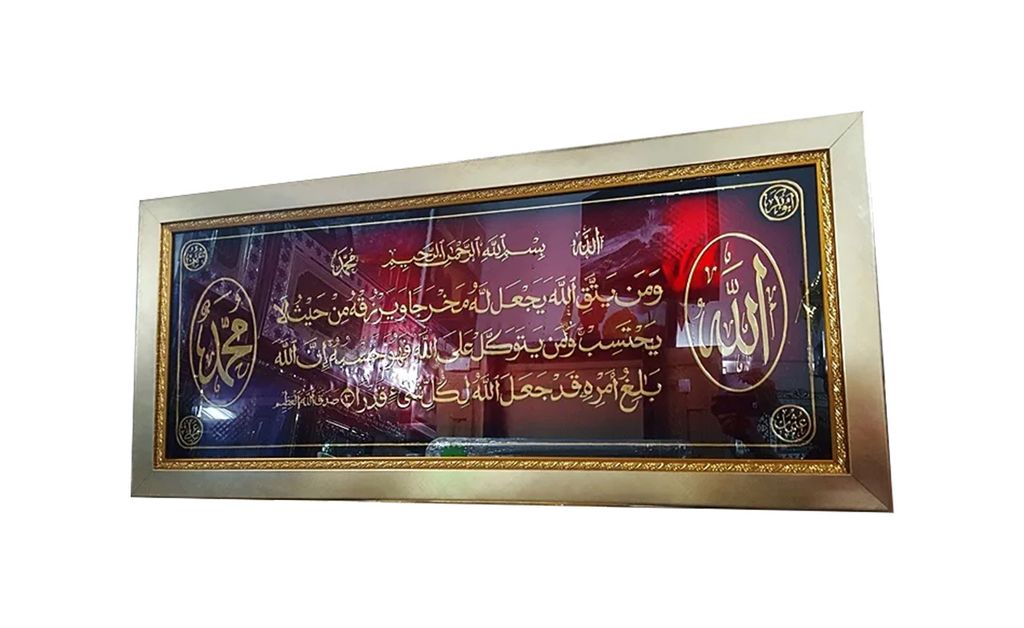 الله بسم الله الرحمن الرحيم محمد
وَمَن يَتَّقِ ٱللَّهَ يَجْعَل لَّهُۥ مَخْرَجًا وَيَرْزُقْهُ مِنْ حَيْثُ لَا
يَحْتَسِبُ وَمَن يَتَوَكَّلْ عَلَى ٱللَّهِ فَهُوَ حَسْبُهُۥٓ إِنَّ ٱللَّهَ
بَٰلِغُ أَمْرِهِۦ قَدْ جَعَلَ ٱللَّهُ لِكُلِّ شَىْءٍ قَدْرًا ٣ صدق الله العظيم
الله
محمد
أبو بكر
عمر
عثمان